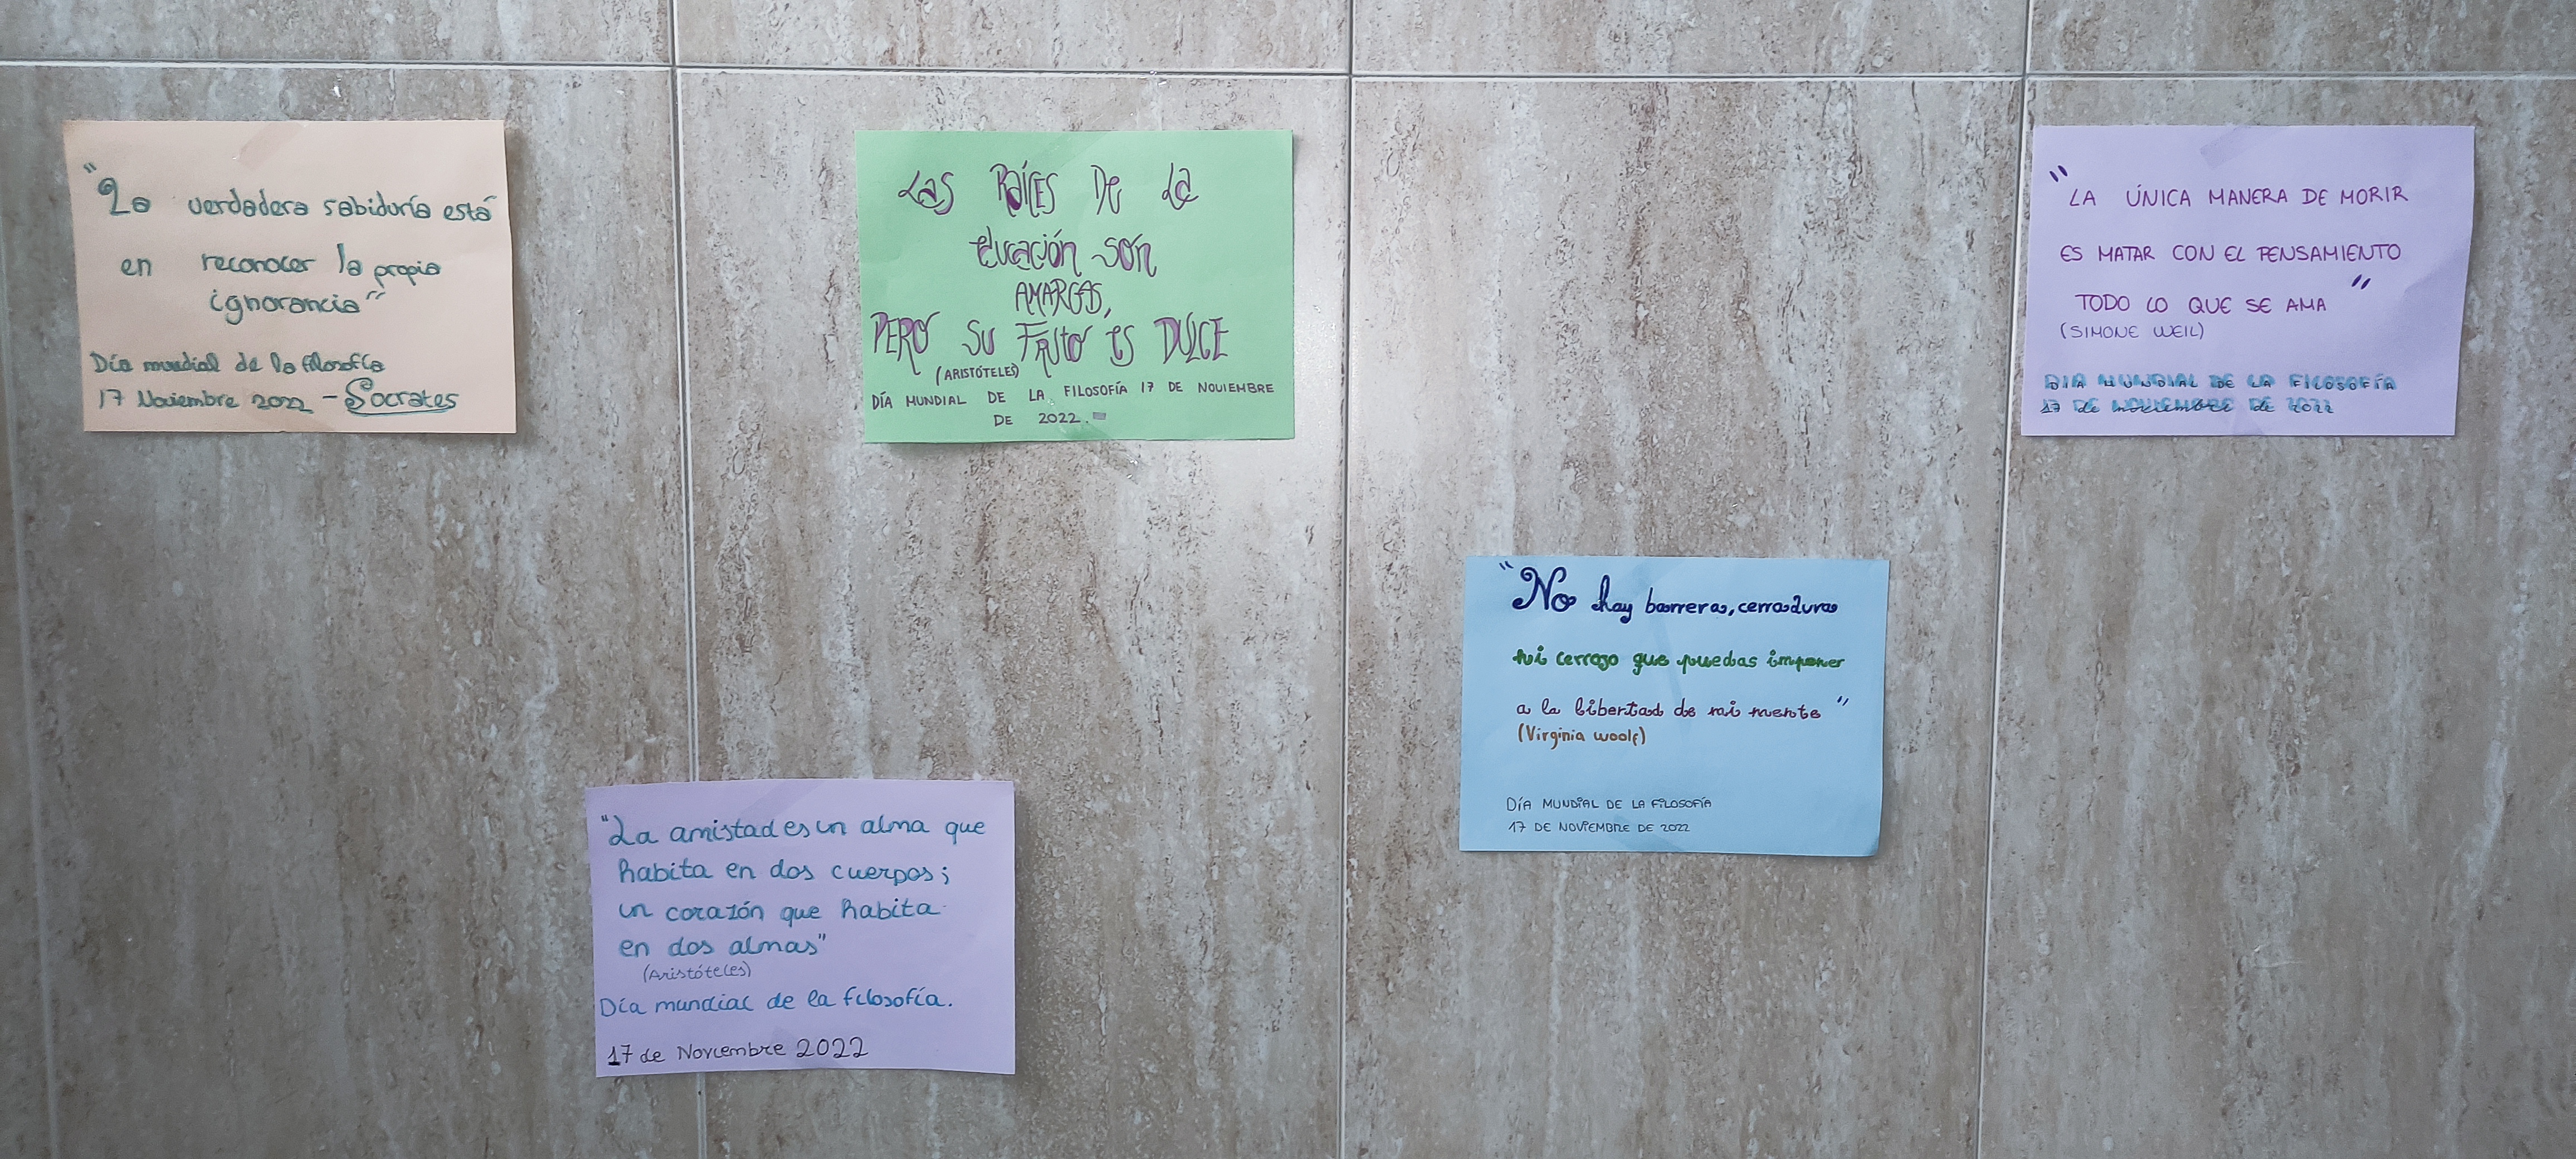 "La verdadera sabiduría está
en reconocer la propia
ignorancia"
Día mundial de la filosofía
17 Noviembre 2022 - Socrates
Las RAÍCES De La
educación son
AMARGAS,
PERO su FRUTO es DULCE
(ARISTÓTELES)
DÍA MUNDIAL DE LA FILOSOFÍA 17 DE NOVIEMBRE
DE 2022.
"LA ÚNICA MANERA DE MORIR
ES MATAR CON EL PENSAMIENTO
TODO LO QUE SE AMA"
(SIMONE WEIL)
DIA MUNDIAL DE LA FILOSOFÍA
17 de noviembre de 2022
"No hay barrera, cerradura
ni cerrojo que puedas imponer
a la libertad de mi mente"
(Virginia Woolf)
DÍA MUNDIAL DE LA FILOSOFÍA
17 DE NOVIEMBRE DE 2022
"La amistad es un alma que
habita en dos cuerpos;
un corazón que habita
en dos almas"
(Aristóteles)
Día mundial de la filosofía.
17 de Noviembre 2022